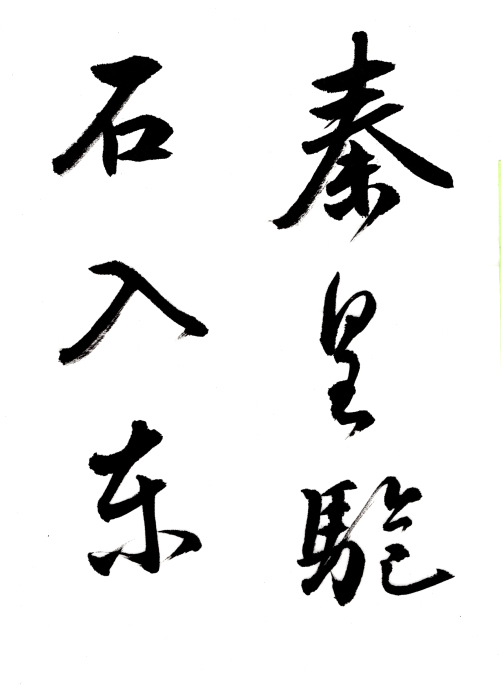 秦皇
石入东